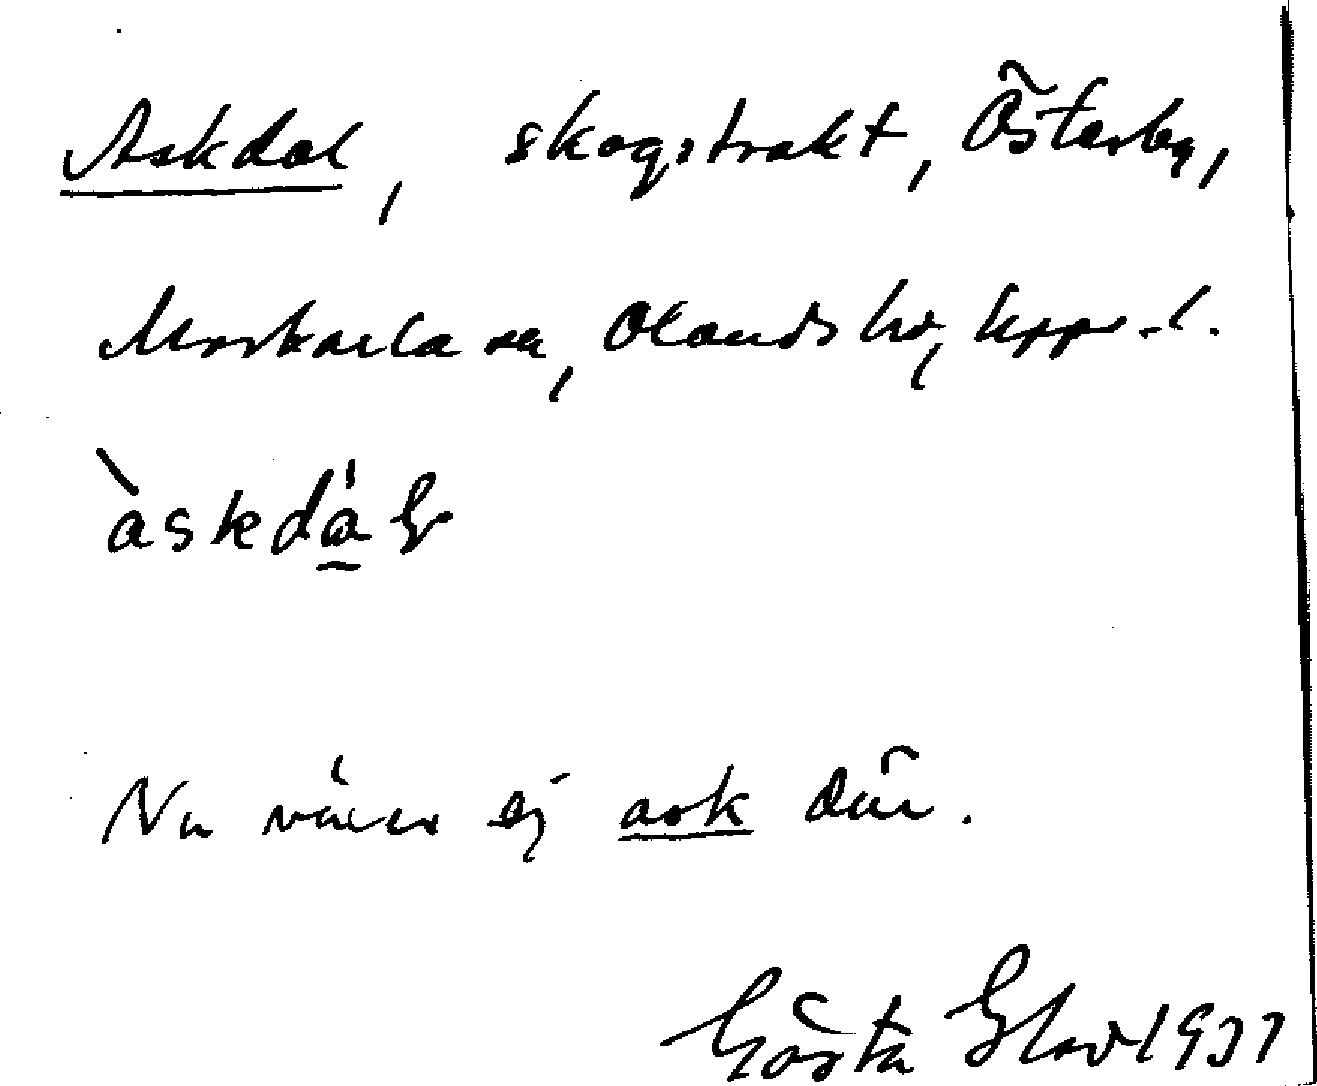 Askdal, skogstrakt, Österby,
Morkarla sn, Olands hd, Uppl.
àskdá̱ɫ
Nu växer ej ask där.
Gösta Elov 1937